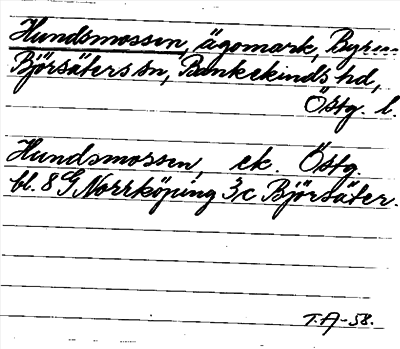 Hundsmossen, ägomark, Byrum
Björsäters sn, Bankekinds hd,
Östg. l.
Hundsmossen, ek. Östg.
bl. 8 G Norrköping 3c Björsäter.
T.A-58.